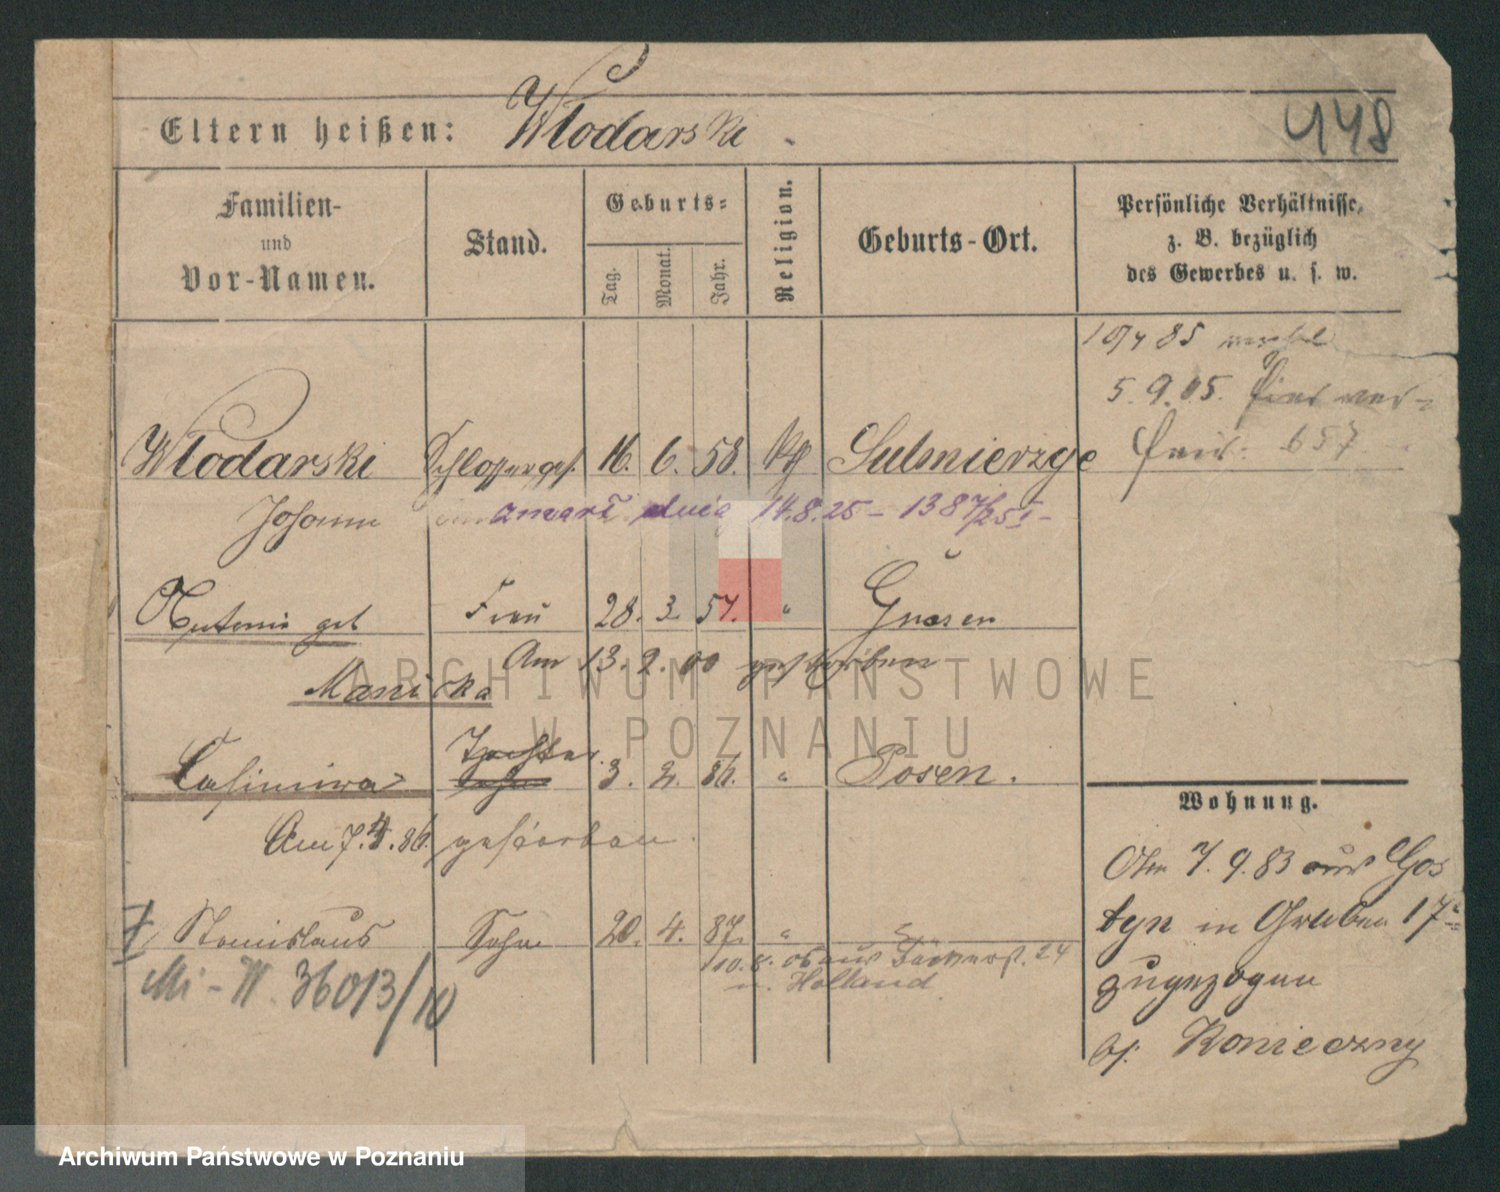 Eltern heißen: Włodarski
448
Familien-
und
Vor-Namen.
Stand.
Geburts-
Tag.
Monat.
Jahr.
Religion.
Geburts-Ort.
Persönliche Verhältnisse,
z. B. bezüglich
des Gewerbes u. s. w.
85
5. 9. 05. hier
657
Włodarski Schlosserges. 16. 6. 58. Sulmierzyce
Johann
zmarł dnia 14.8.25 –
geb Frau 28. 3. Gnesen
Am 13. 2. 00 gestorben
Manicka
Casimira Tochter 3. 2. 86. " Posen.
Am 7. 4. 86. gestorben.
Stanislaus Sohn 20. 4. 87. "
10. 8. 06 aus Bäckerst. 24
n. Holland
Mi - W. 36013/10
Wohnung.
Am 7. 9. 83 aus Gos
tyn in Graben 17
zugezogen
bf. Konieczny
ARCHIWUM PAŃSTWOWE
W POZNANIU
Archiwum Państwowe w Poznaniu